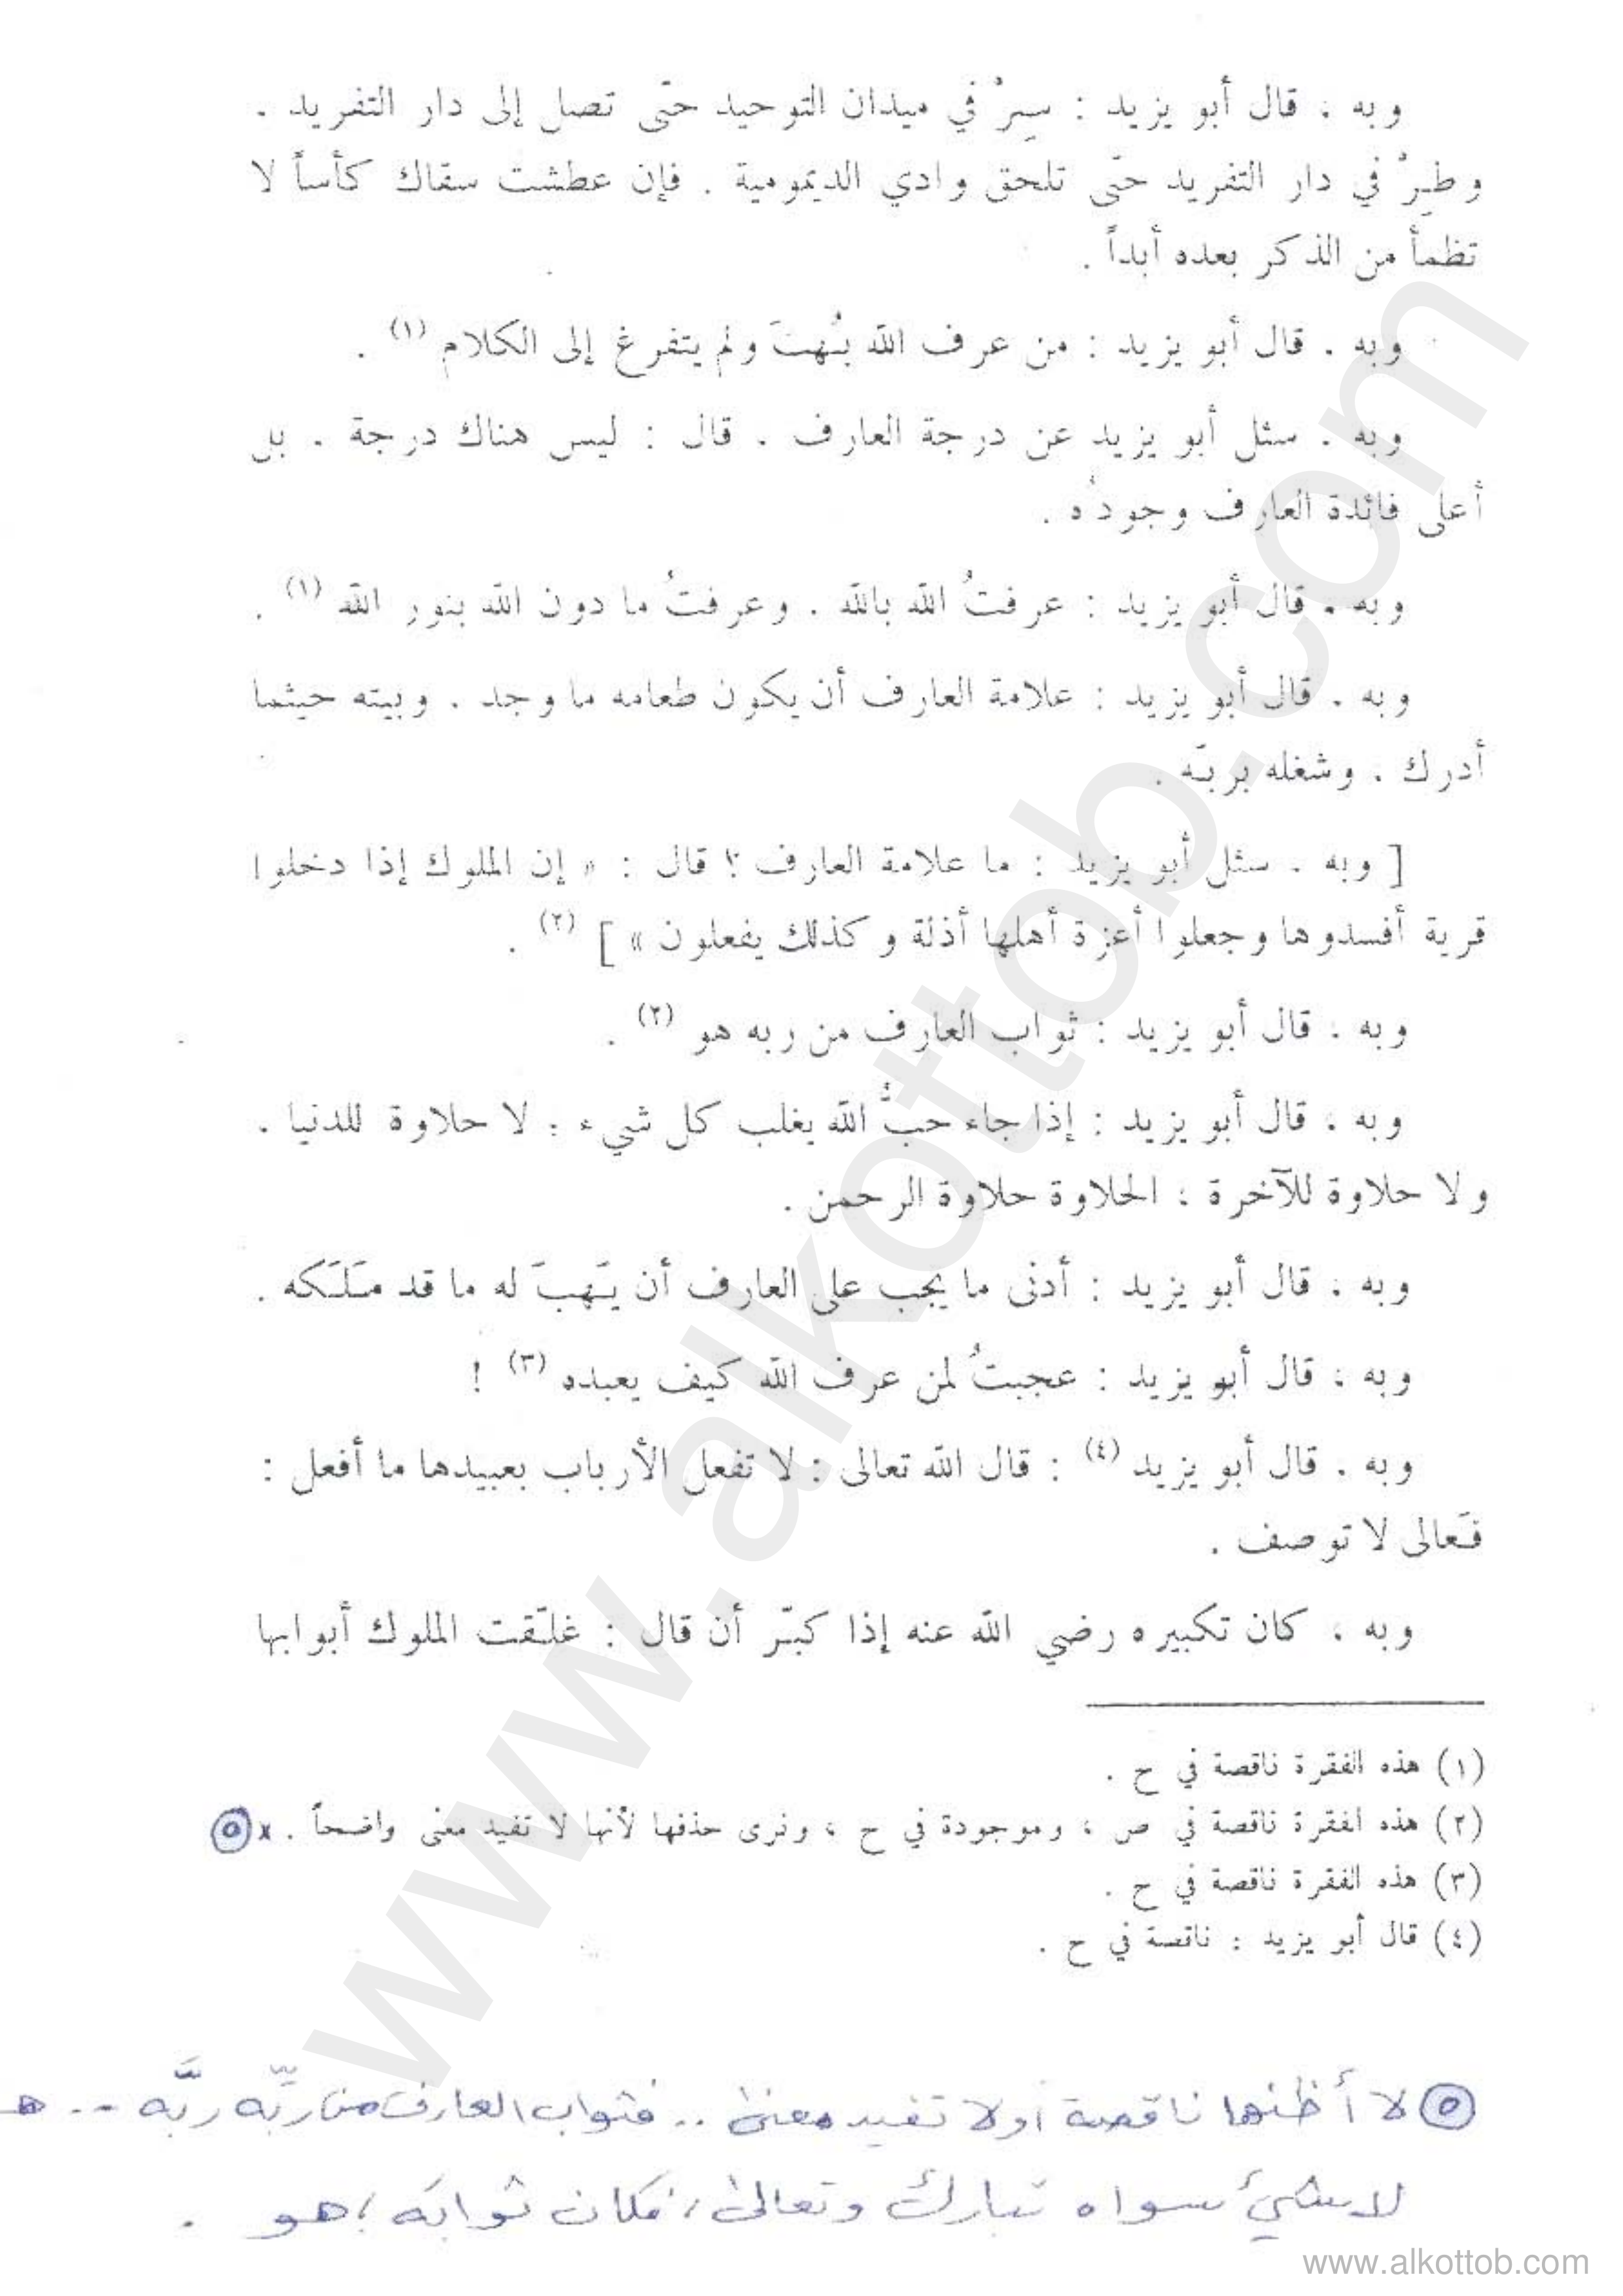 وبه ، قال أبو يزيد : سِرْ في ميدان التوحيد حتّى تصل إلى دار التفريد .
وطِرْ في دار التفريد حتّى تلحق وادي الديمومية . فإن عطشت سقاك كأساً لا
تظمأ من الذكر بعده أبداً .
وبه . قال أبو يزيد : من عرف الله بُهتَ ولم يتفرغ إلى الكلام (١) .
وبه . سئل أبو يزيد عن درجة العارف . قال : ليس هناك درجة . بل
أعلى فائدة العارف وجودُه .
وبه . قال أبو يزيد : عرفتُ الله بالله . وعرفتُ ما دون الله بنور الله (١) .
وبه . قال أبو يزيد : علامة العارف أن يكون طعامه ما وجد . وبيته حيثما
أدرك . وشغله بربّه .
[ وبه . سئل أبو يزيد : ما علامة العارف ؟ قال : « إن الملوك إذا دخلوا
قرية أفسدوها وجعلوا أعزة أهلها أذلة وكذلك يفعلون » ] (٢) .
وبه ، قال أبو يزيد : ثواب العارف من ربه هو (٢) .
وبه ، قال أبو يزيد : إذا جاء حبُّ الله يغلب كل شيء : لا حلاوة للدنيا .
ولا حلاوة للآخرة ؛ الحلاوة حلاوة الرحمن .
وبه ، قال أبو يزيد : أدنى ما يجب على العارف أن يَهبَ له ما قد مَلَكه .
وبه ، قال أبو يزيد : عجبتُ لمن عرف الله كيف يعبده (٣) !
وبه . قال أبو يزيد (٤) : قال الله تعالى : لا تفعل الأرباب بعبيدها ما أفعل :
فَعالى لا توصف .
وبه ، كان تكبيره رضي الله عنه إذا كبّر أن قال : غلّقت الملوك أبوابها
(١) هذه الفقرة ناقصة في ح .
(٢) هذه الفقرة ناقصة في ص ، وموجودة في ح ، ونرى حذفها لأنها لا تفيد معنى واضحاً . x ٥
(٣) هذه الفقرة ناقصة في ح .
(٤) قال أبو يزيد : ناقصة في ح .
٥ لا أظنها ناقصة أو لا تفيد معنىً .. فثواب العارف من ربِّه ربَّه .. هـ
لا شيءُ سواه تبارك وتعالى ، فكان ثوابَه ؛ هو .
www.alkottob.com
www.alkottob.com